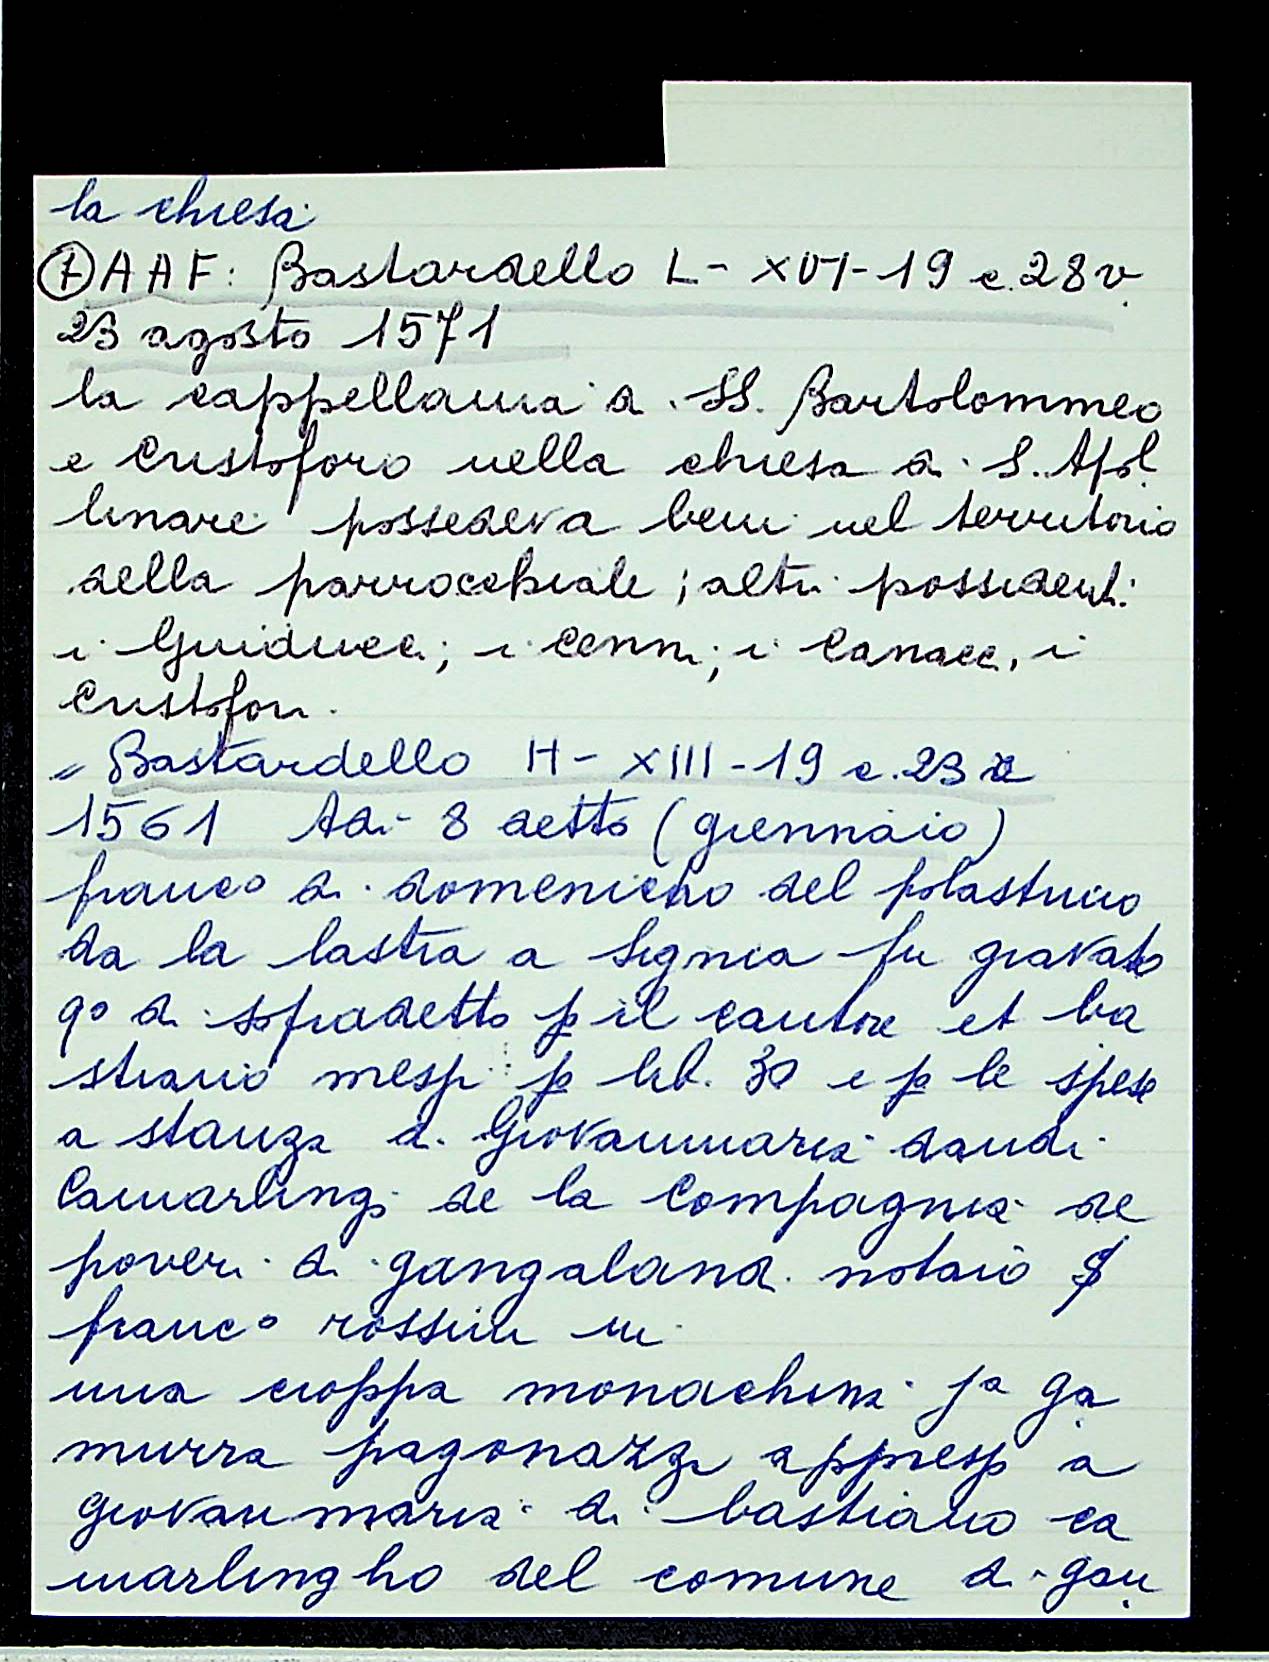 la chiesa
(7) AAF: Bastardello L - XVI - 19 c. 28v.
23 agosto 1571
la cappellania di SS. Bartolommeo
e Cristoforo nella chiesa di S. Apol
linare possedeva beni nel territorio
della parrocchiale; altri possidenti:
i Guiducci; i Cenni; i Canacci, i
Cristofori.
= Bastardello H - XIII - 19 c. 23
1561 Adi 8 detto (giennaio)
franco di domenicho del polastrino
da la lastra a Signia fu gravato
qo di sopradetto p il cautore et ba
striario messi p lib. 30 e p le spese
a stanza di Giovanmaria dandi
Camarlingi de la Compagnia de
poveri di gangalandi notaio
franco rossini in
una cioppa monachina pa ga
murra pagonazzi appresso a
giovanmaria di bastiano ca
marlingho del comune di gan